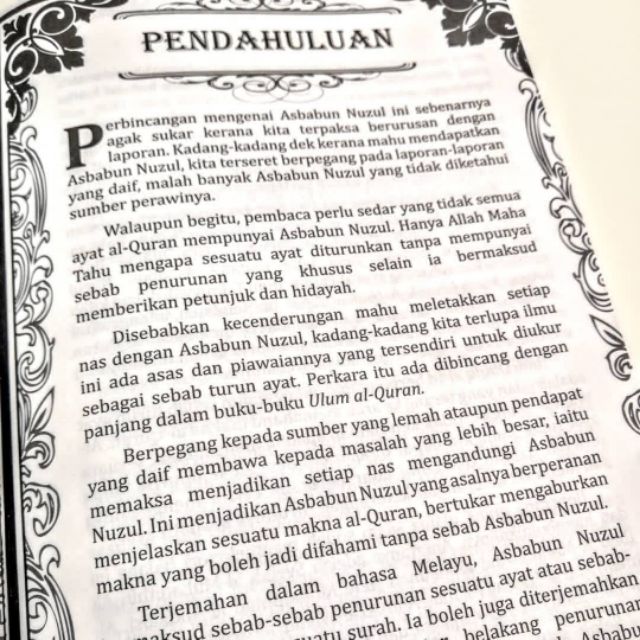 PENDAHULUAN
Perbincangan mengenai Asbabun Nuzul ini sebenarnya
agak sukar kerana kita terpaksa berurusan dengan
laporan. Kadang-kadang dek kerana mahu mendapatkan
Asbabun Nuzul, kita terseret berpegang pada laporan-laporan
yang daif, malah banyak Asbabun Nuzul yang tidak diketahui
sumber perawinya.
Walaupun begitu, pembaca perlu sedar yang tidak semua
ayat al-Quran mempunyai Asbabun Nuzul. Hanya Allah Maha
Tahu mengapa sesuatu ayat diturunkan tanpa mempunyai
sebab penurunan yang khusus selain ia bermaksud
memberikan petunjuk dan hidayah.
Disebabkan kecenderungan mahu meletakkan setiap
nas dengan Asbabun Nuzul, kadang-kadang kita terlupa ilmu
ini ada asas dan piawaiannya yang tersendiri untuk diukur
sebagai sebab turun ayat. Perkara itu ada dibincang dengan
panjang dalam buku-buku Ulum al-Quran.
Berpegang kepada sumber yang lemah ataupun pendapat
yang daif membawa kepada masalah yang lebih besar, iaitu
memaksa menjadikan setiap nas mengandungi Asbabun
Nuzul. Ini menjadikan Asbabun Nuzul yang asalnya berperanan
menjelaskan sesuatu makna al-Quran, bertukar mengaburkan
makna yang boleh jadi difahami tanpa sebab Asbabun Nuzul.
Terjemahan dalam bahasa Melayu, Asbabun Nuzul
maksud sebab-sebab penurunan sesuatu ayat atau sebab-
surah. Ia boleh juga diterjemahkan
belakang penurunan